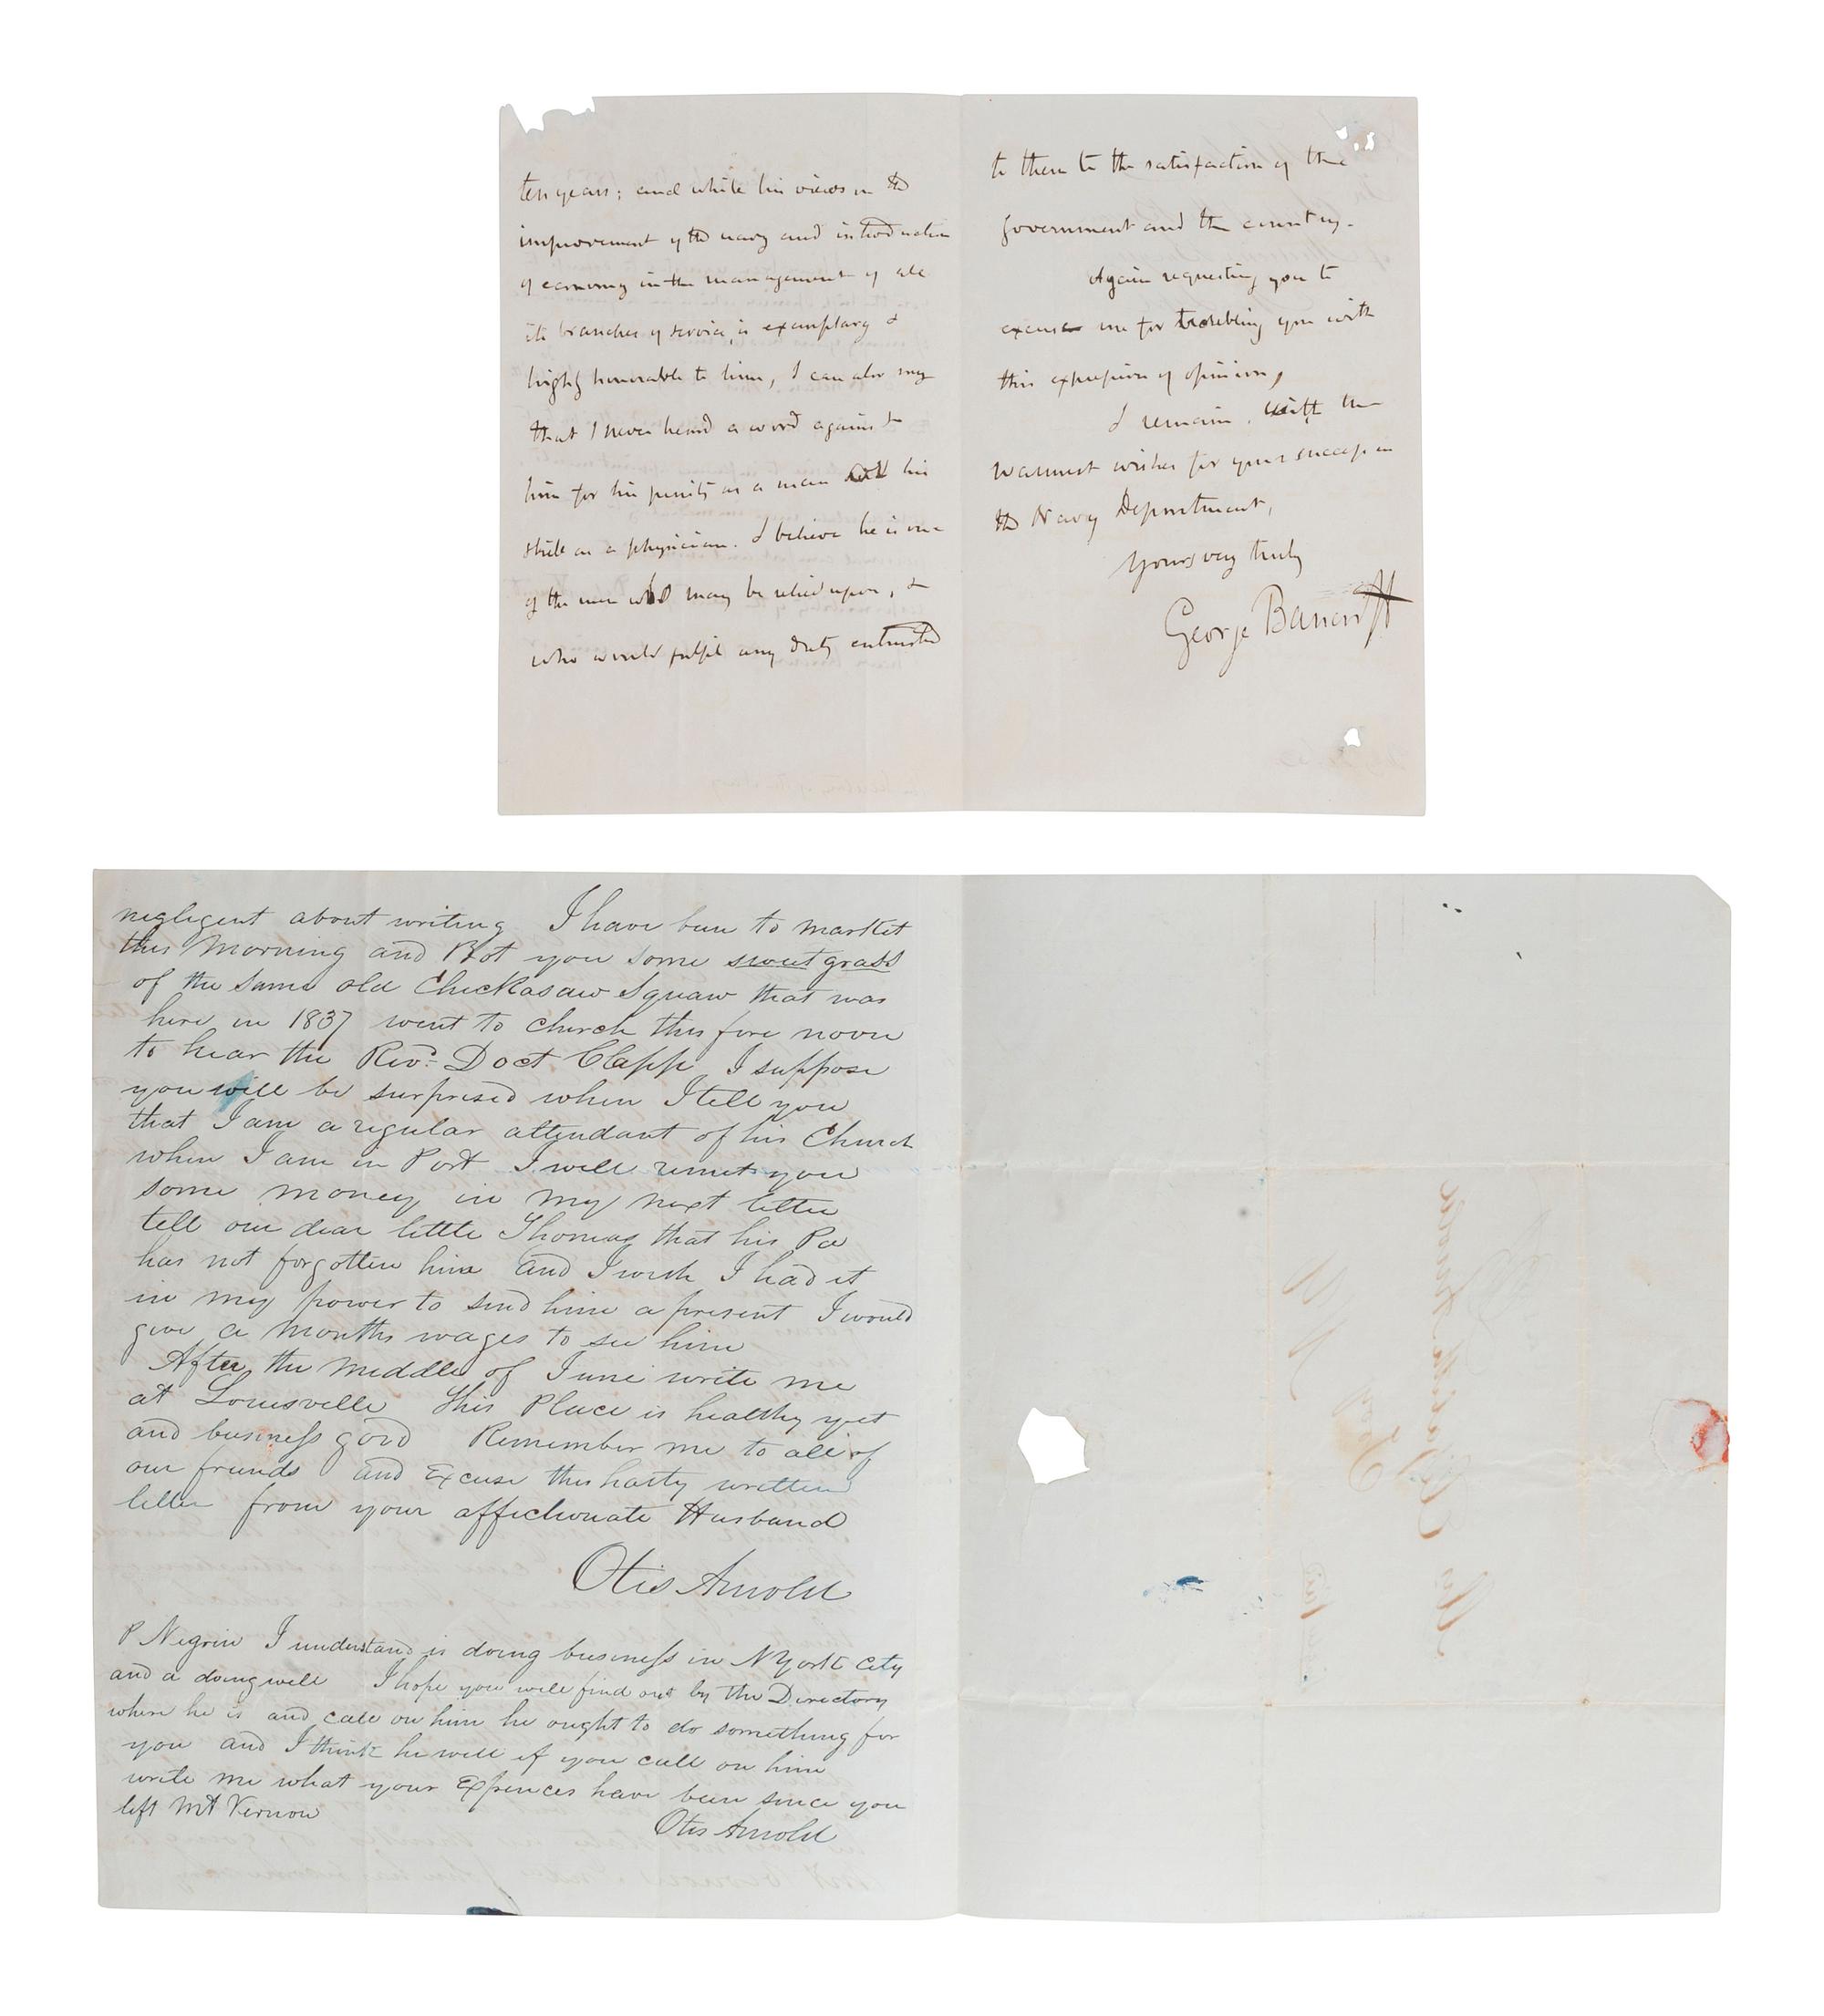 ten years; and while his views on the
improvement of the navy and introduction
of economy in the management of all
its branches of service, is exemplary &
highly honorable to him, I can also say
that I never heard a word against
him for his purity as a man or his
skill as a physician. I believe he is one
of the men who may be relied upon, &
who would fulfil any duty entrusted
to them to the satisfaction of the
government and the country.
Again requesting you to
excuse me for troubling you with
this expression of opinion,
I remain, with the
warmest wishes for your success in
the Navy Department,
Yours very truly
George Bancroft
negligent about writing I have been to market
this Morning and Bot you some sweet grass
of the same old Chickasaw Squaw that was
here in 1837 went to church this fore noon
to hear the Revd. Doct Clapp I suppose
you will be surprised when I tell you
that I am a regular attendant of his Church
when I am in Port I will remit you
some money in my next letter
tell our dear little Thomas that his Pa
has not forgotten him and I wish I had it
in my power to send him a present I would
give a months wages to see him
After the middle of June write me
at Louisville this Place is healthy yet
and business good Remember me to all of
our friends and Excuse this hasty written
letter from your affectionate Husband
Otis Arnold
P Negrin I understand is doing business in N York City
and a doing well I hope you will find out by the Directory
where he is and call on him he ought to do something for
you and I think he will if you call on him
write me what your Expences have been since you
left Mt Vernon
Otis Arnold